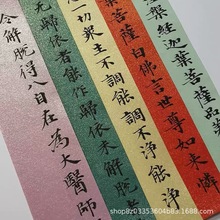 槃經迦葉菩薩品
葉菩薩白佛言世尊如來
一切衆生不調能調不淨能淨
無歸依者能作歸依未解脫者
令解脫得八自在為大醫師